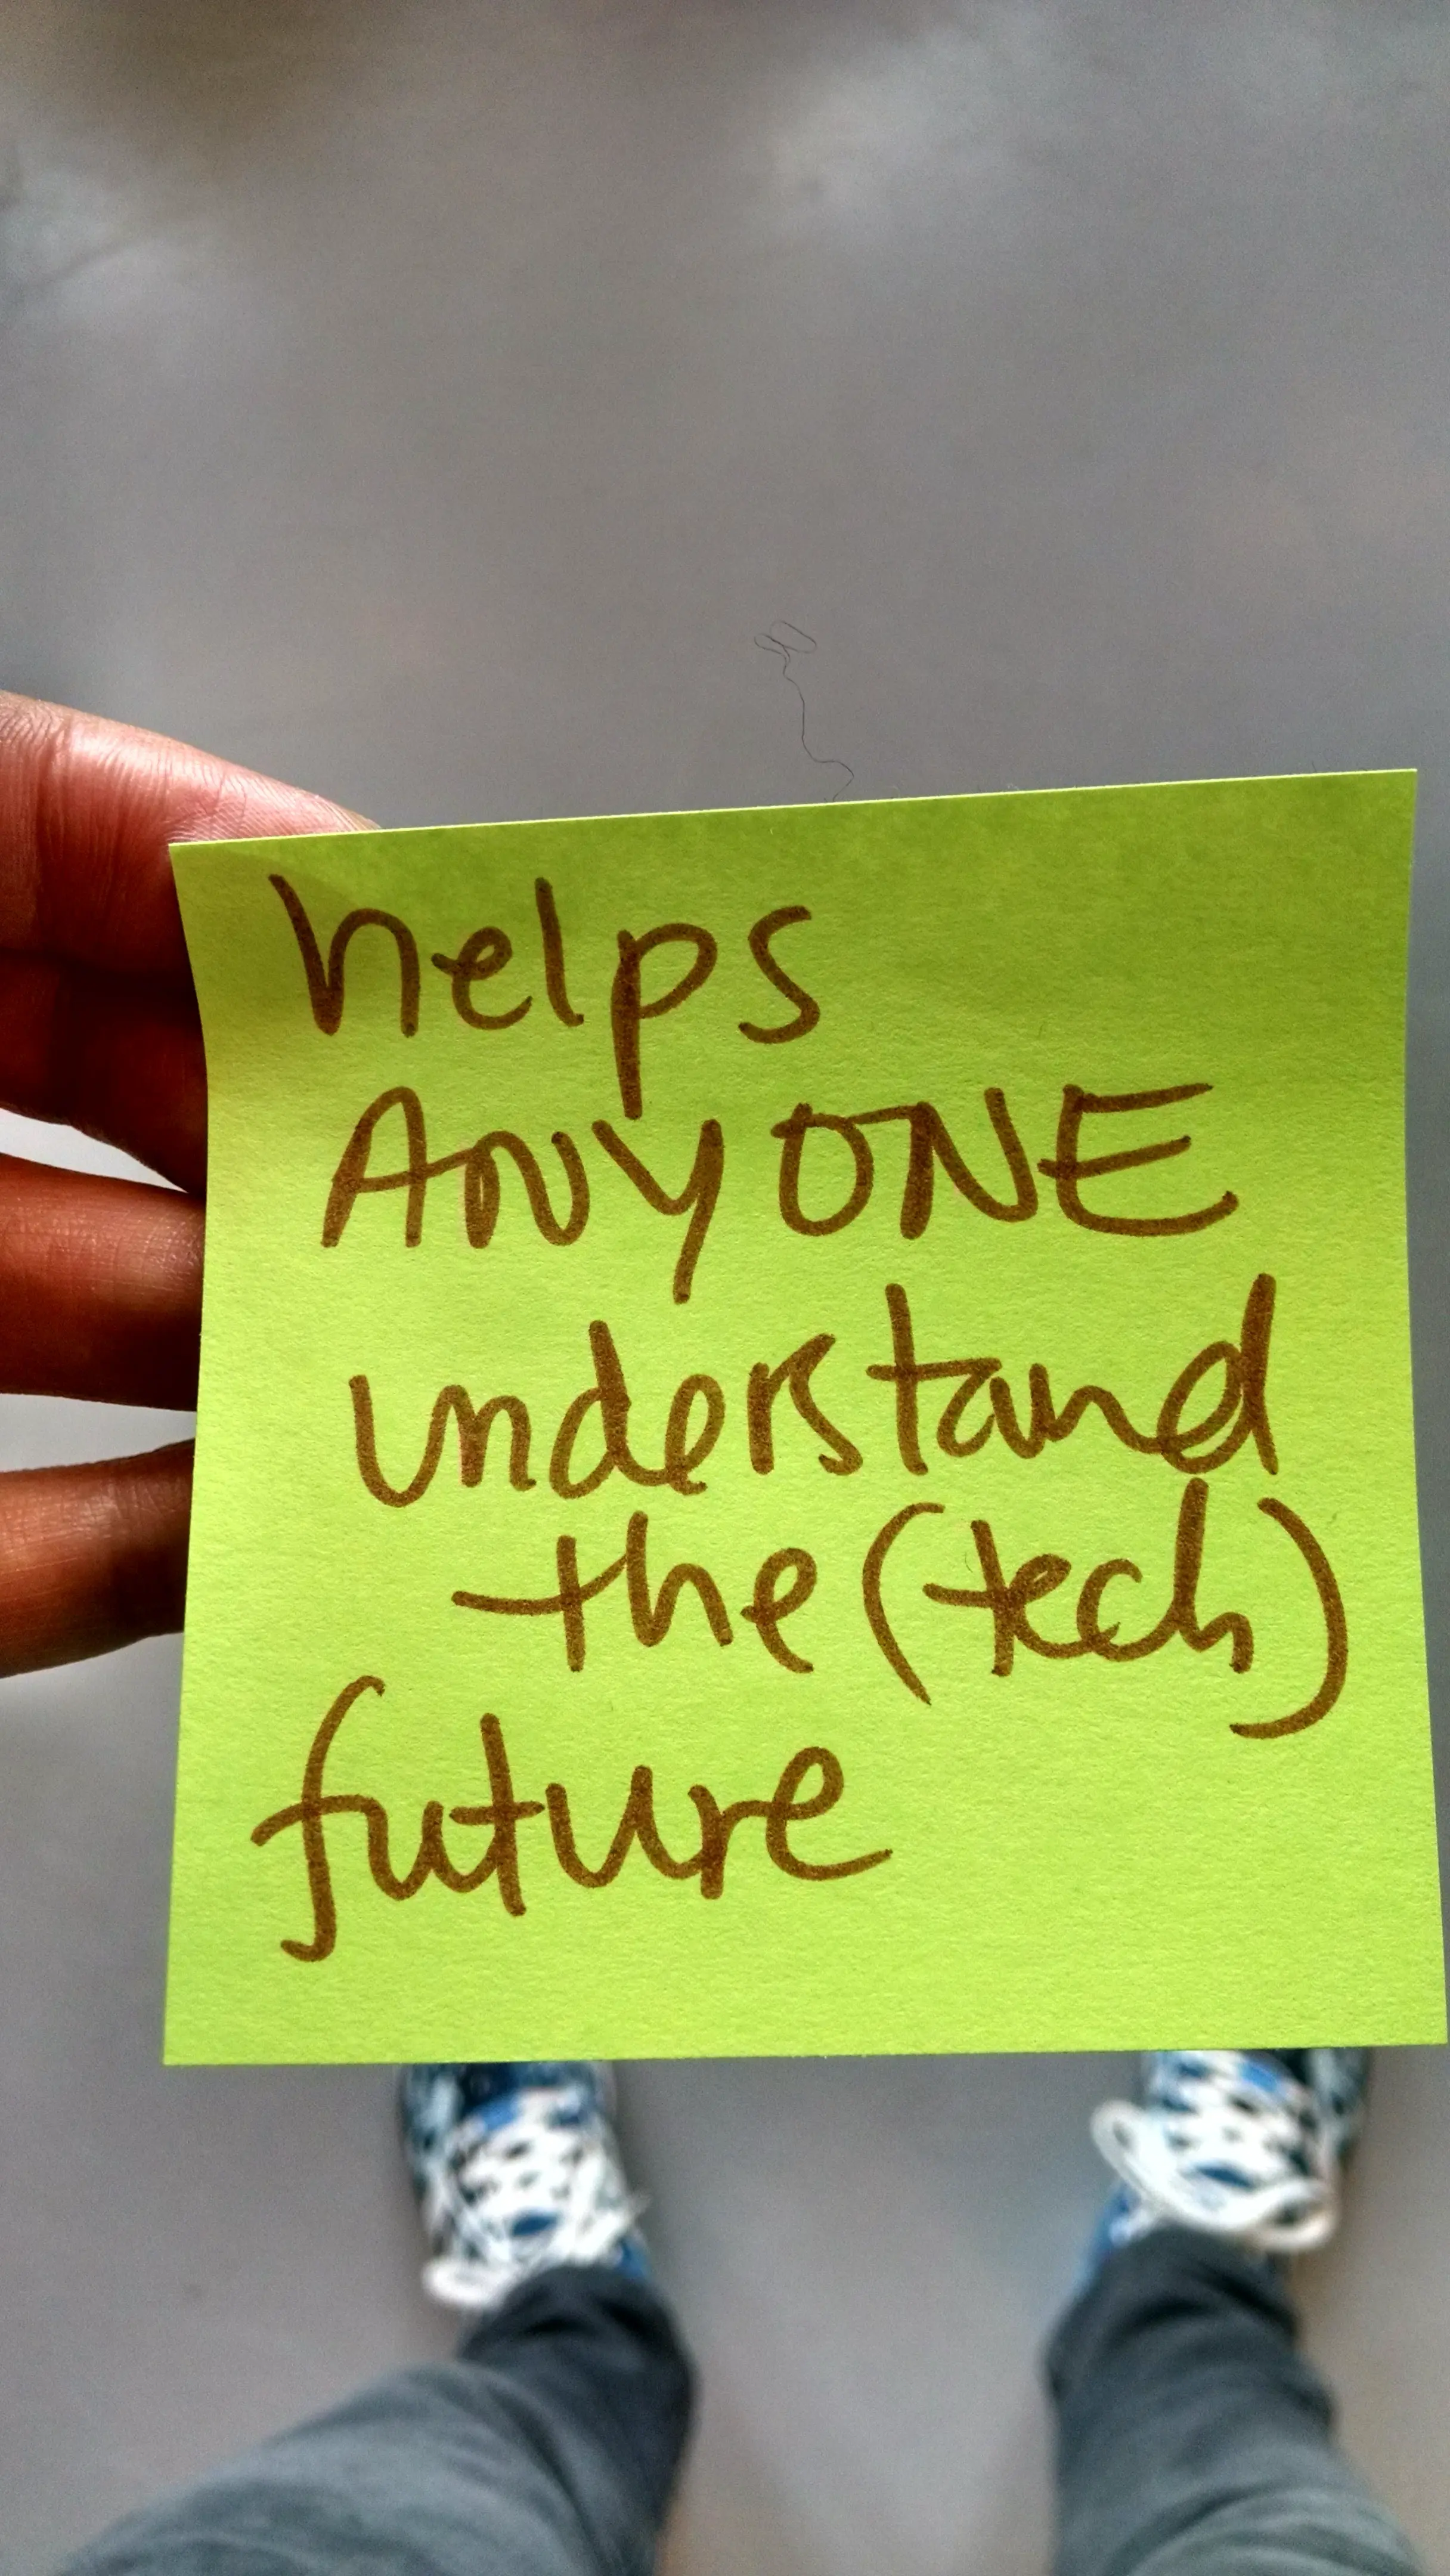 helps
ANYONE
understand
the (tech)
future